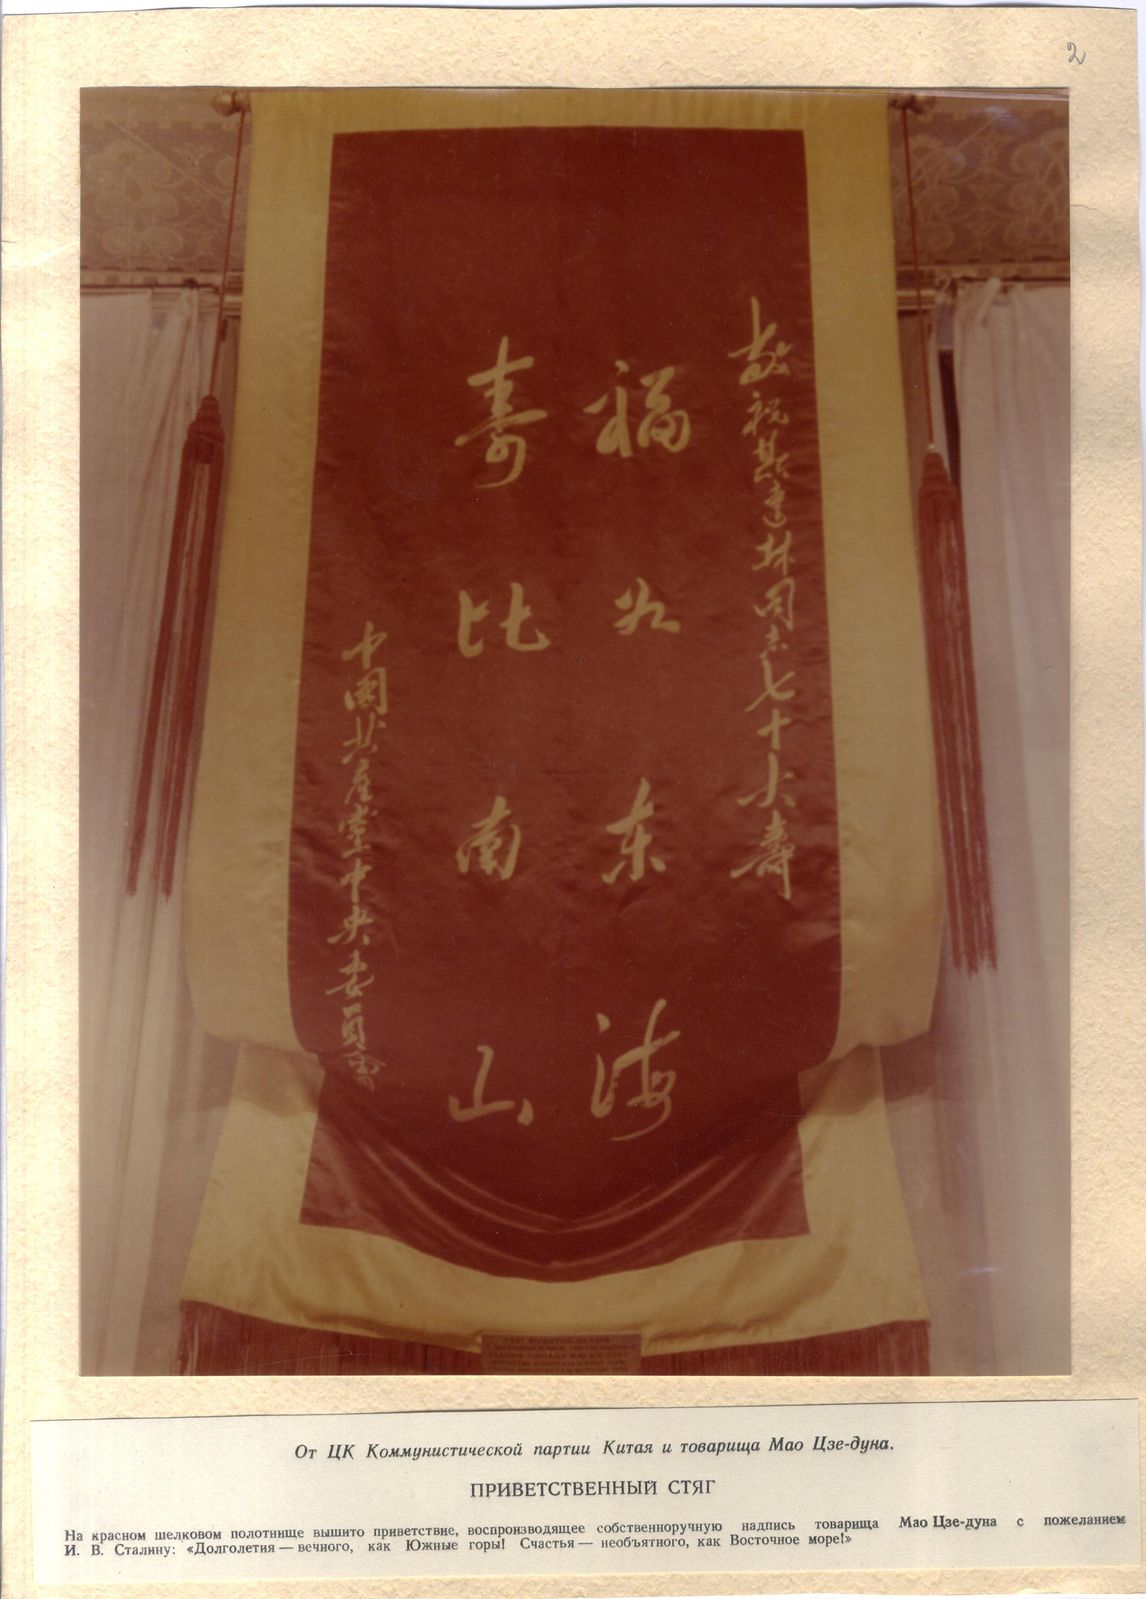 2
敬祝斯達林同志七十大壽
福如东海
寿比南山
中國共産黨中央委員會
От ЦК Коммунистической партии Китая и товарища Мао Цзе-дуна.
ПРИВЕТСТВЕННЫЙ СТЯГ
На красном шелковом полотнище вышито приветствие, воспроизводящее собственноручную надпись товарища Мао Цзе-дуна с пожеланием
И. В. Сталину: «Долголетия — вечного, как Южные горы! Счастья — необъятного, как Восточное море!»